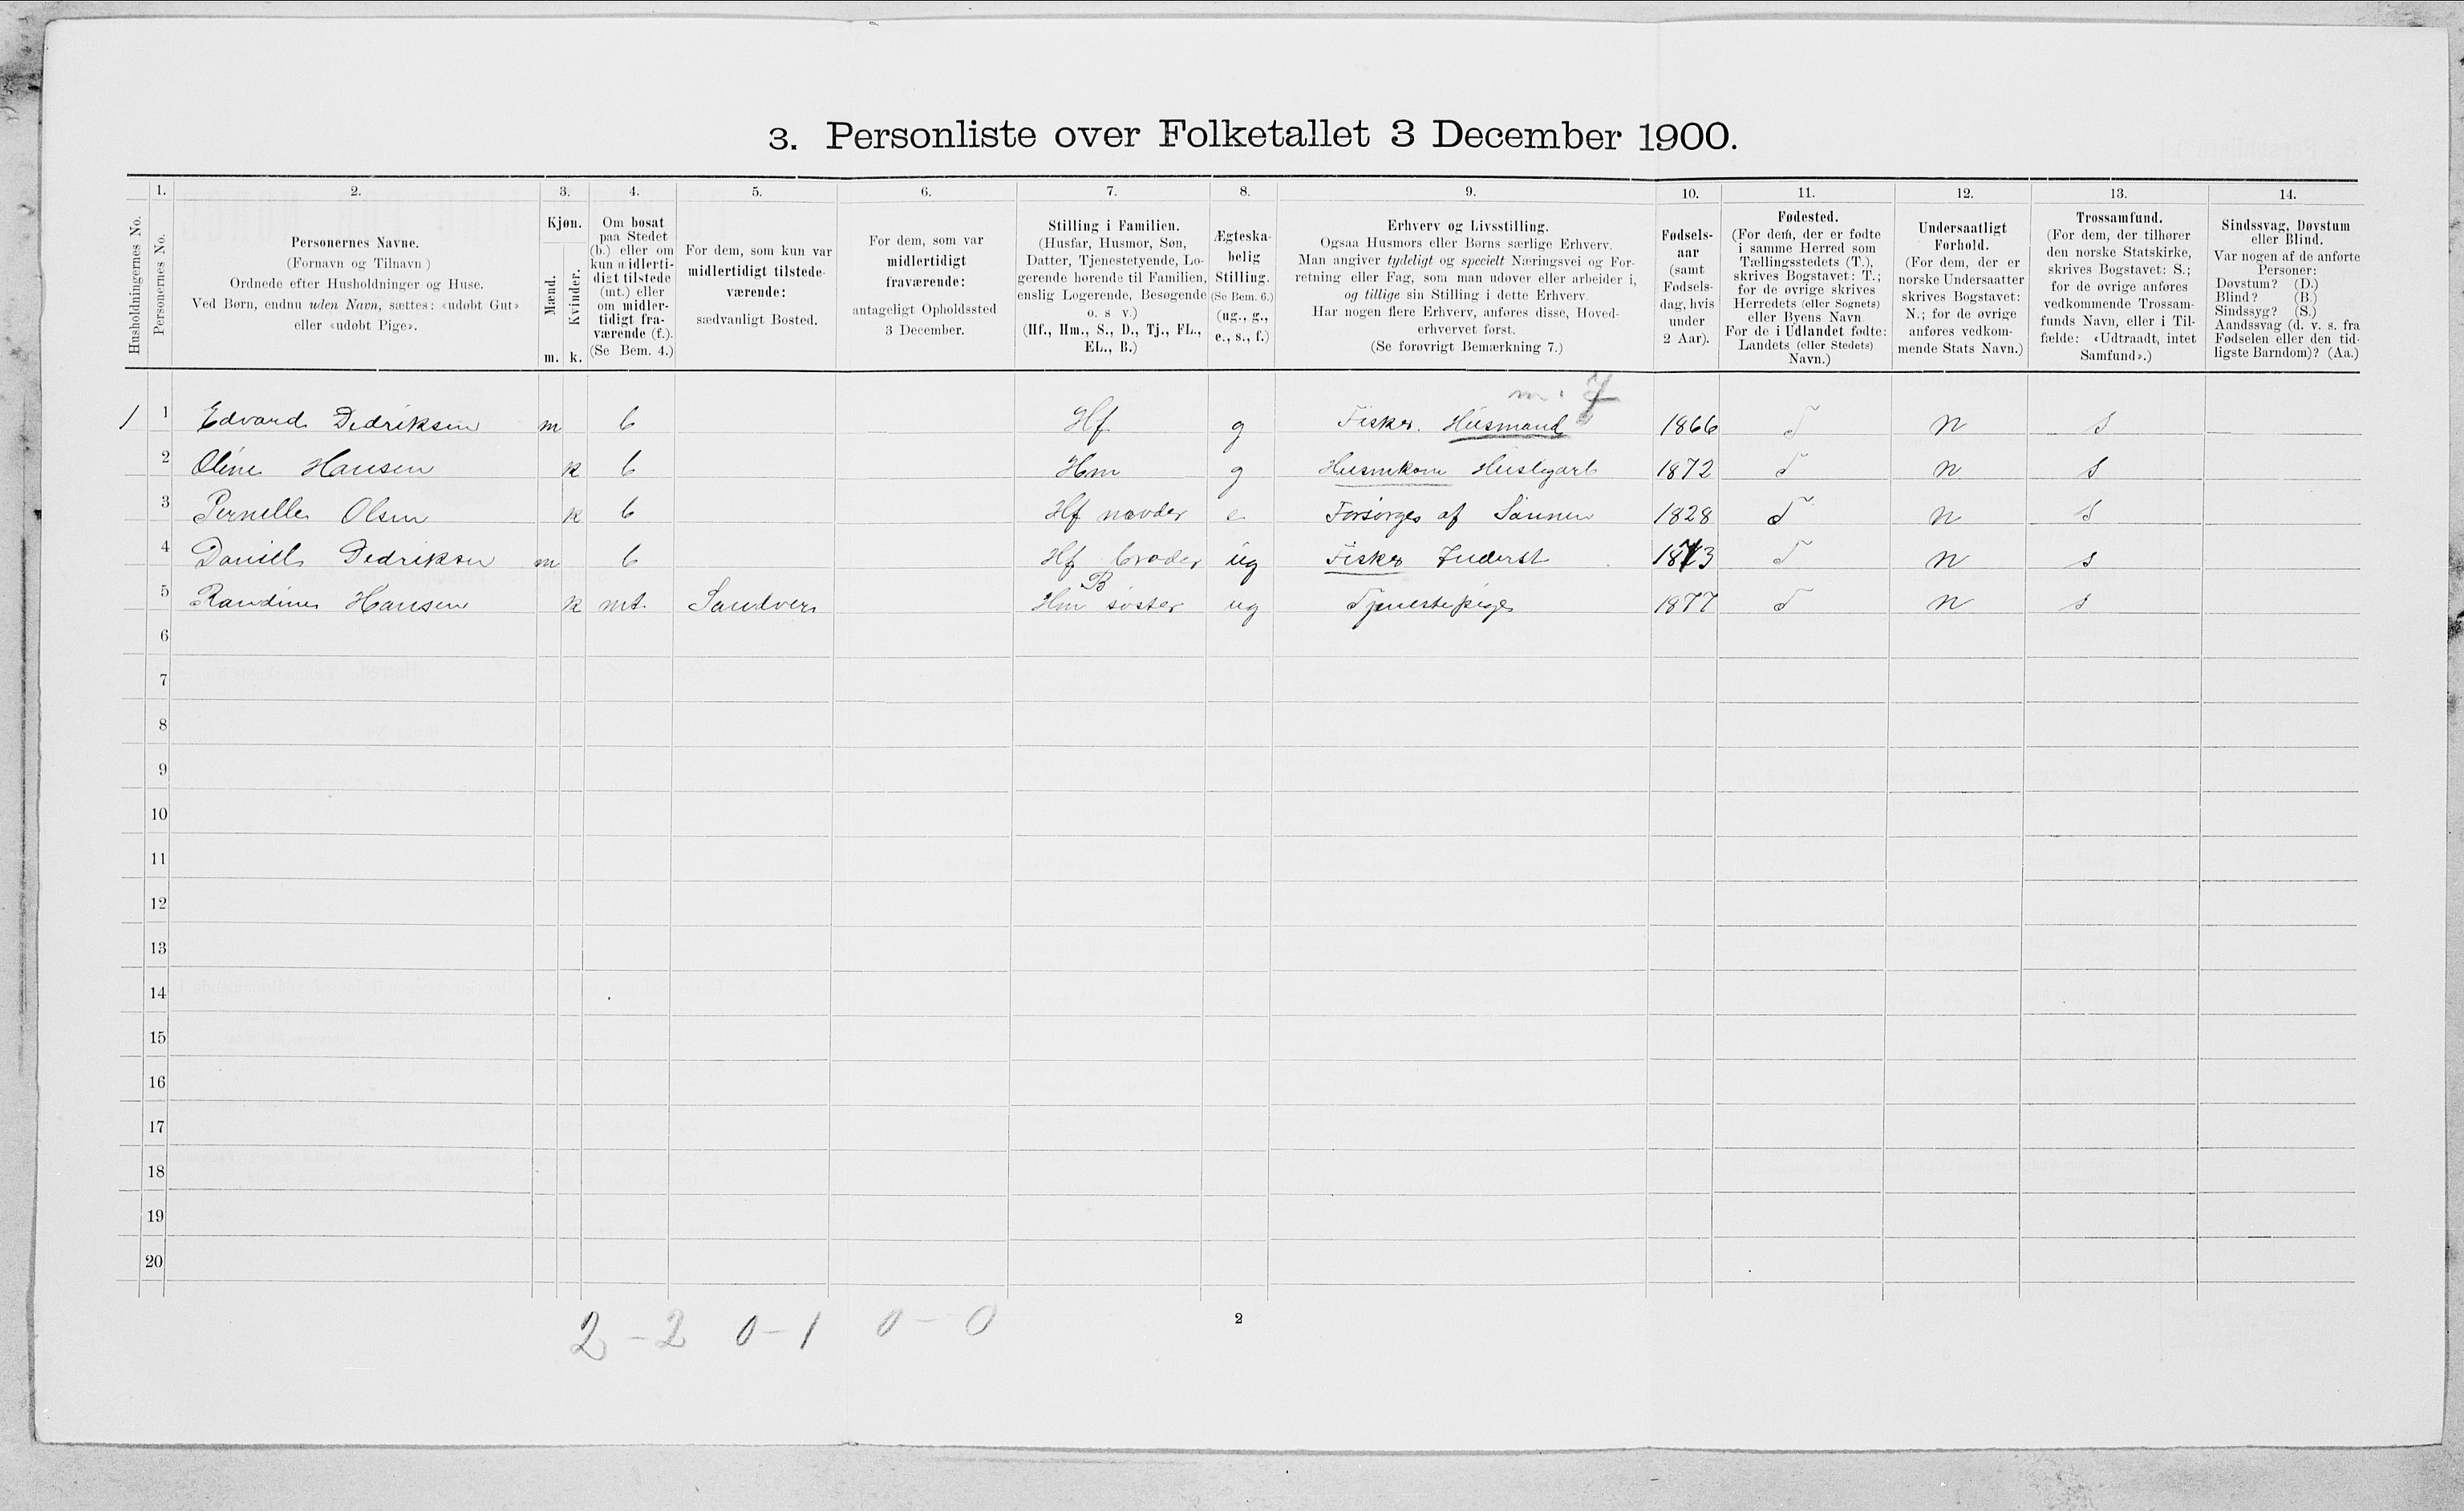 3. Personliste over Folketallet 3 December 1900.
1. 2. 3. 4. 5. 6. 7. 8. 9. 10. 11. 12. 13. 14.
Husholdningernes No.
Personernes No.
Personernes Navne.
(Fornavn og Tilnavn )
Ordnede efter Husholdninger og Huse.
Ved Børn, endnu uden Navn, sættes: «udøbt Gut»
eller «udøbt Pige».
Kjøn.
Mænd.
Kvinder.
m. k.
Om bosat
paa Stedet
(b.) eller om
kun midlerti-
digt tilstede
(mt.) eller
om midler-
tidigt fra-
værende (f.).
(Se Bem. 4.)
For dem, som kun var
midlertidigt tilstede-
værende:
sædvanligt Bosted.
For dem, som var
midlertidigt
fraværende:
antageligt Opholdssted
3 December.
Stilling i Familien.
(Husfar, Husmor, Søn,
Datter, Tjenestetyende, Lo-
gerende hørende til Familien,
enslig Logerende, Besøgende
o. s v.)
(Hf., Hm., S., D., Tj., FL.,
EL., B.)
Ægteska-
belig
Stilling.
(Se Bem. 6.)
(ug., g.,
e., s., f.)
Erhverv og Livsstilling.
Ogsaa Husmors eller Børns særlige Erhverv.
Man angiver tydeligt og specielt Næringsvei og For-
retning eller Fag, som man udøver eller arbeider i,
og tillige sin Stilling i dette Erhverv.
Har nogen flere Erhverv, anføres disse, Hoved-
erhvervet først.
(Se forøvrigt Bemærkning 7.)
Fødsels-
aar
(samt
Fødsels-
dag, hvis
under
2 Aar).
Fødested.
(For dem, der er fødte
i samme Herred som
Tællingsstedets (T.),
skrives Bogstavet: T.;
for de øvrige skrives
Herredets (eller Sognets)
eller Byens Navn.
For de i Udlandet fødte:
Landets (eller Stedets)
Navn.)
Undersaatligt
Forhold.
(For dem, der er
norske Undersaatter
skrives Bogstavet:
N.; for de øvrige
anføres vedkom-
mende Stats Navn.)
Trossamfund.
(For dem, der tilhører
den norske Statskirke,
skrives Bogstavet: S.;
for de øvrige anføres
vedkommende Trossam-
funds Navn, eller i Til-
fælde: «Udtraadt, intet
Samfund».)
Sindssvag, Døvstum
eller Blind.
Var nogen af de anførte
Personer:
Døvstum? (D.)
Blind? (B.)
Sindssyg? (S.)
Aandssvag (d. v. s. fra
Fødselen eller den tid-
ligste Barndom)? (Aa.)
m. J
1 1 Edvard Dedriksen m b Hf g Fisker. Husmand 1866 T N S
2 Oline Hansen k b Hm g 1872 T N S
3 Pernelle Olsen k b Hf moder e Forsørges af Sønnen 1828 T N S
4 Daniel Dedriksen m b Hf broder ug Fisker Inderst 1873 T N S
B
5 Randine Hansen k mt Sandver Hm søster ug Tjenestepige 1877 T N S
6
7
8
9
10
11
12
13
14
15
16
17
18
19
20
2 - 2 0 - 1 0 - 0
2